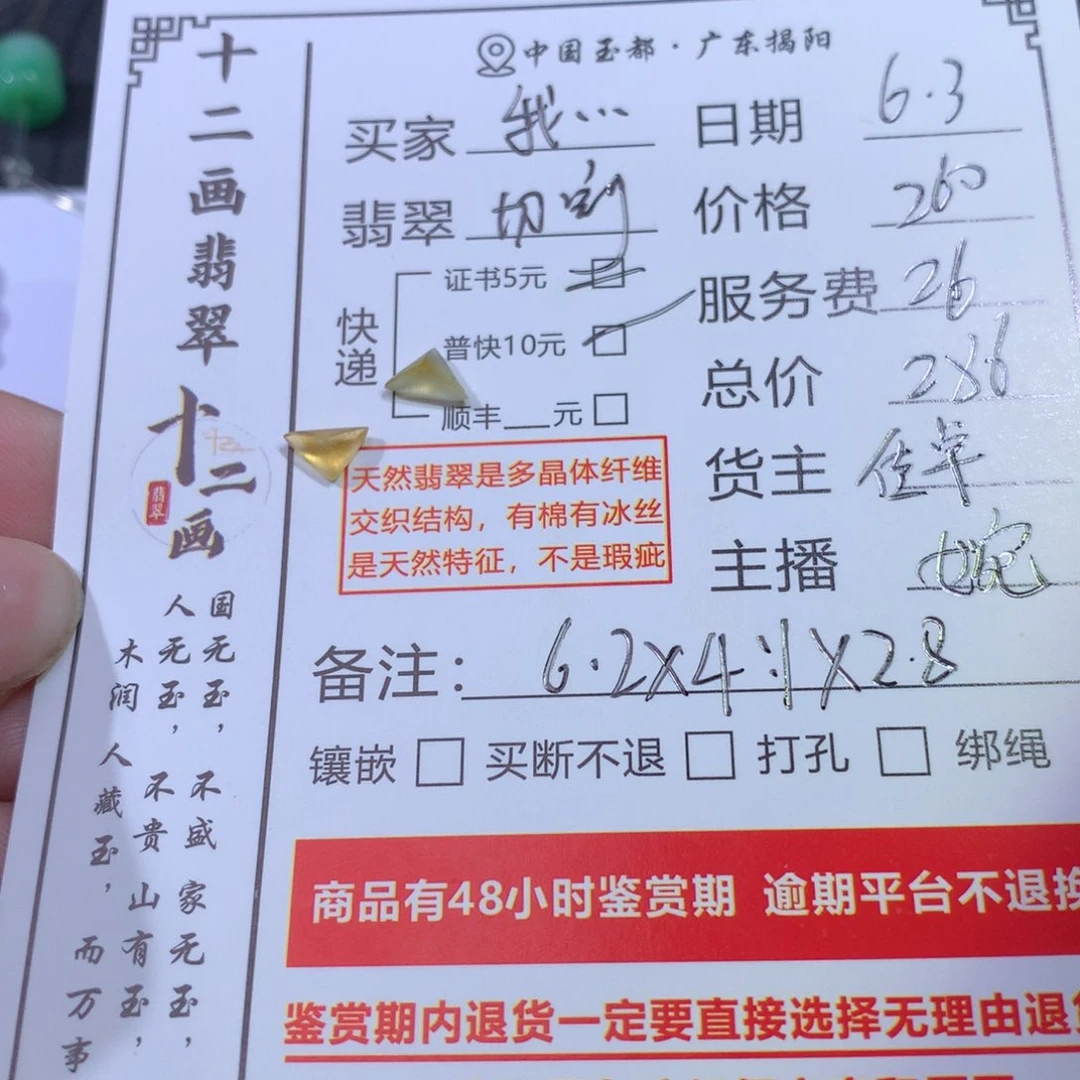 十二画翡翠
十二画
翡翠
国无玉，不盛家无玉，
人无玉，不贵山有玉，
木润人藏玉，而万事
中国玉都·广东揭阳
买家 我… 日期 6.3
翡翠 切割 价格 260
快递
证书5元
普快10元
顺丰__元
服务费 26
总价 286
货主 佳单
主播 婉
天然翡翠是多晶体纤维
交织结构，有棉有冰丝
是天然特征，不是瑕疵
备注：6.2X4.1X2.8
镶嵌 买断不退 打孔 绑绳
商品有48小时鉴赏期 逾期平台不退换
鉴赏期内退货一定要直接选择无理由退货